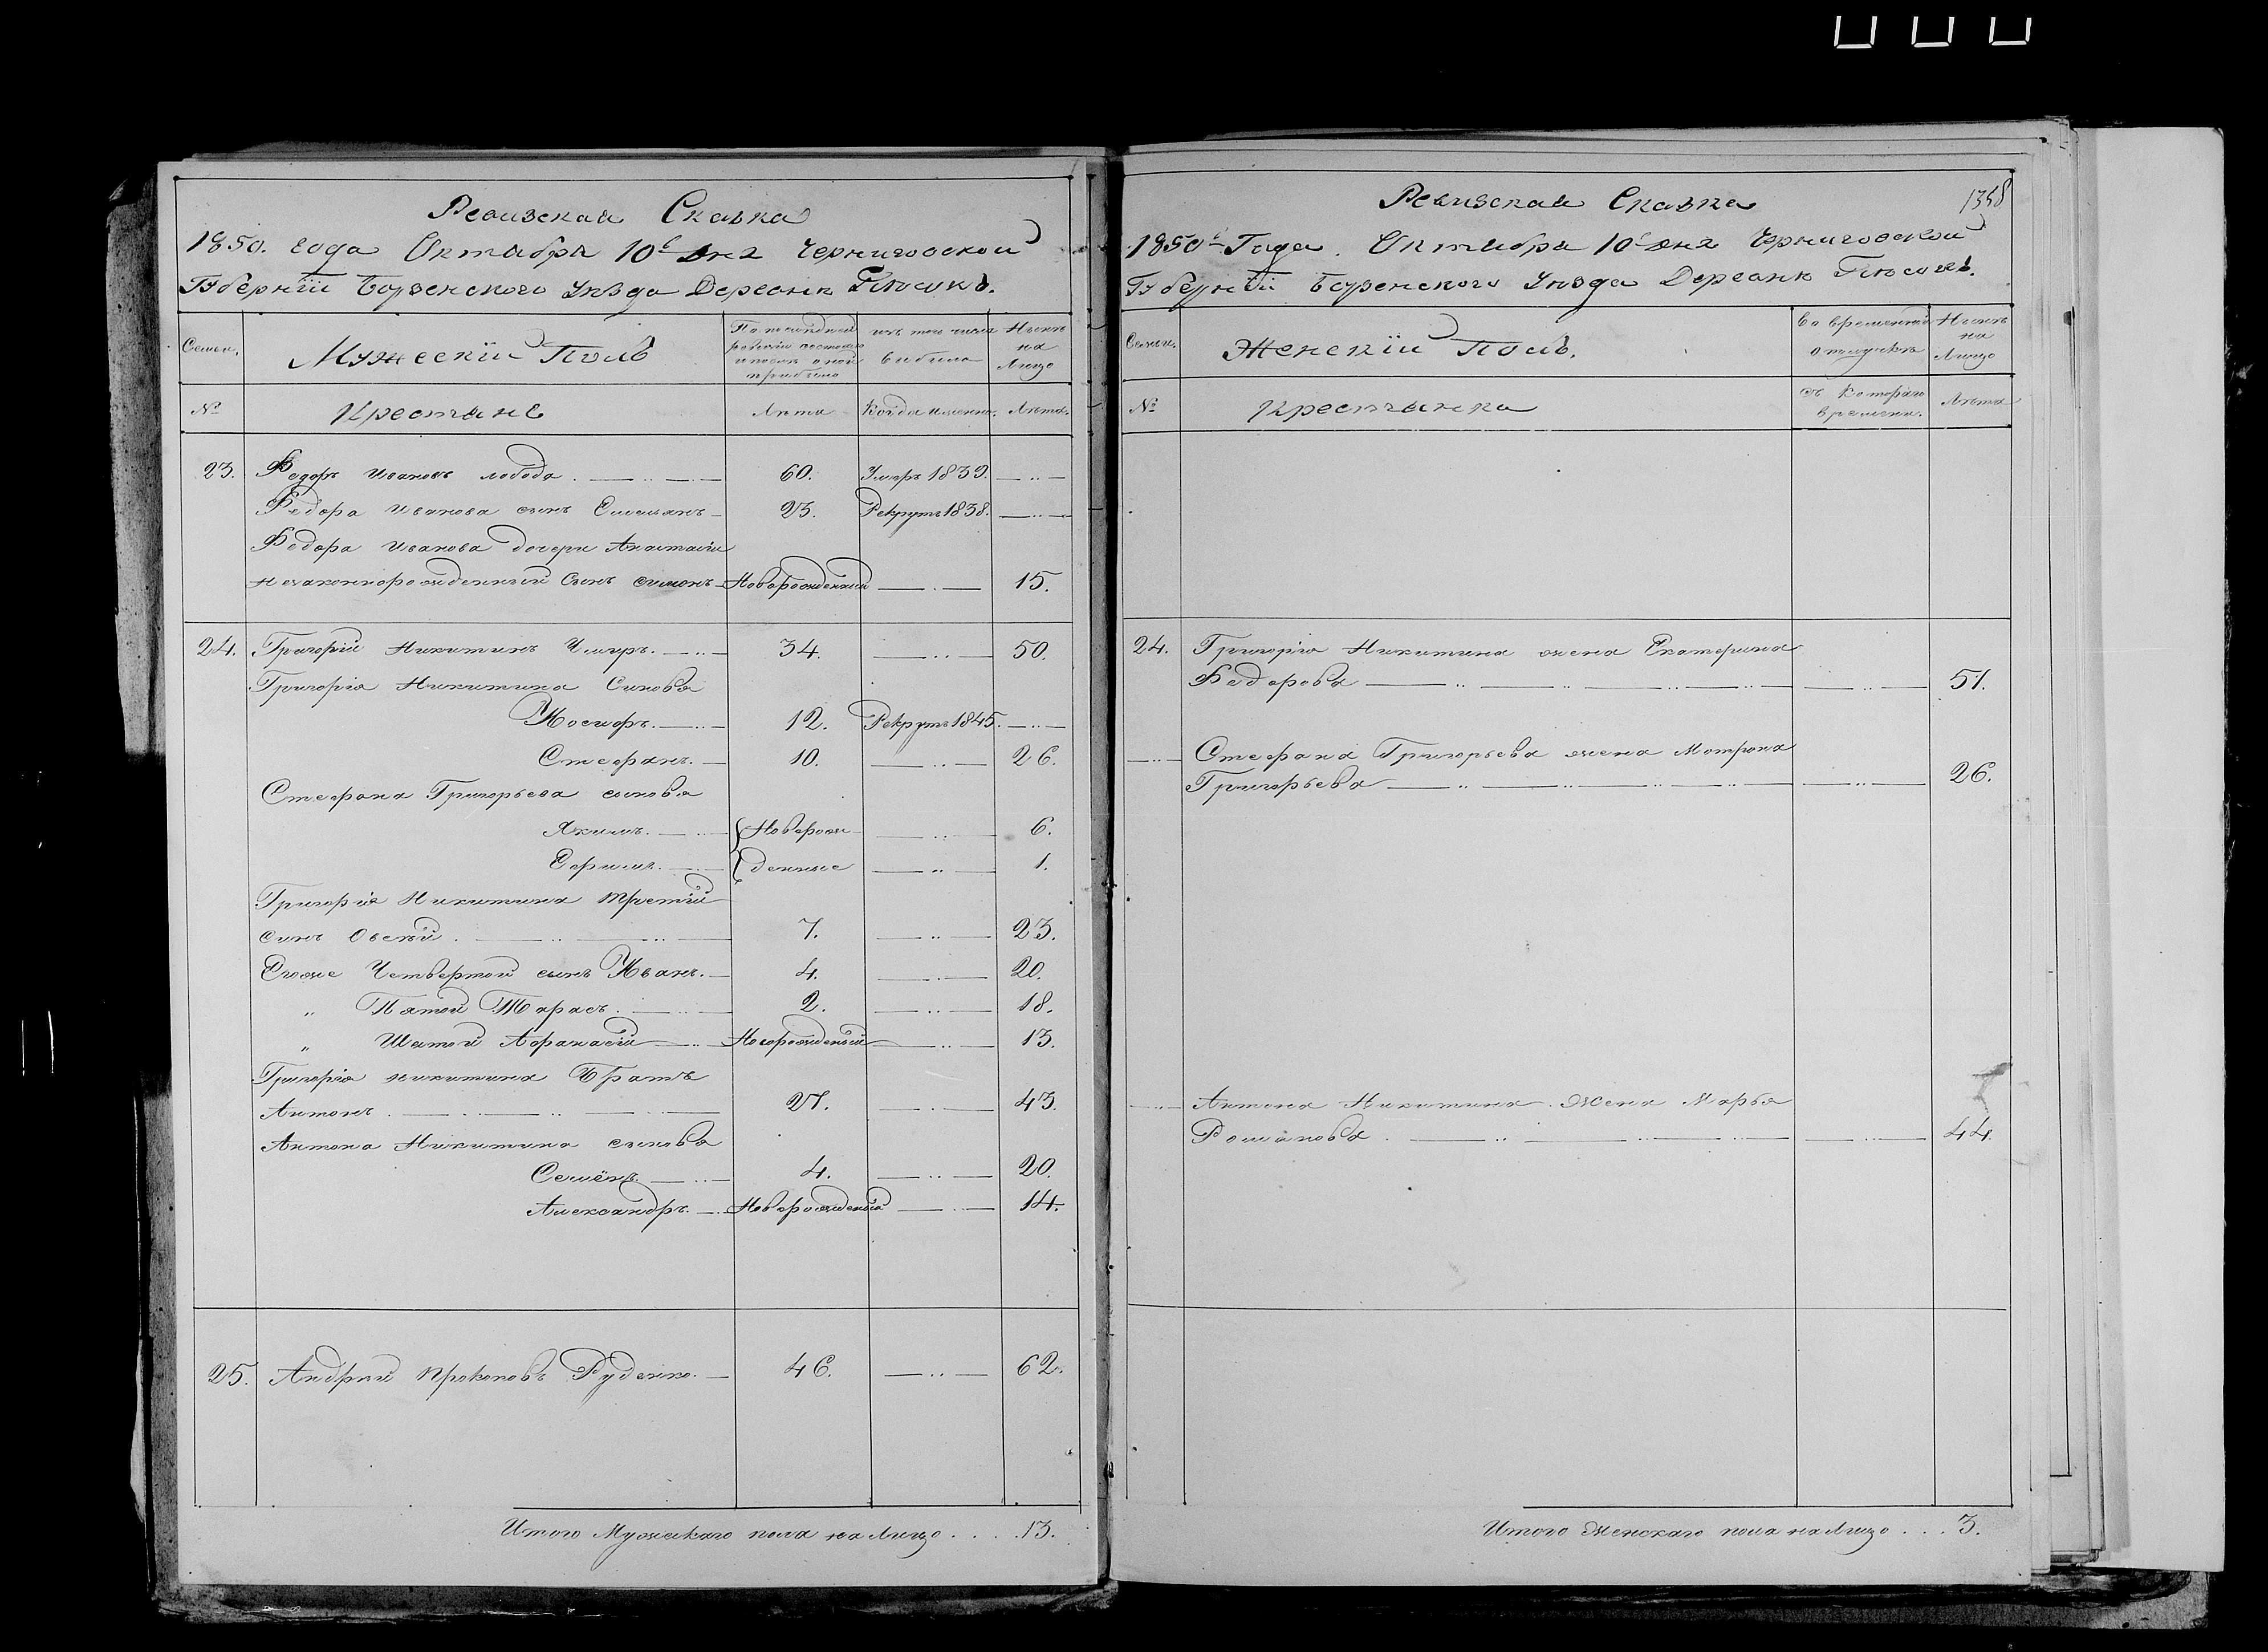 Ревизская Сказка
1850. года Октября 10го дня Черниговской
Губернїи Борзенского Уезда Деревни
Семьи.
Мужескїи Полъ
По последней ревизіи состояло и после оной прибыло
изъ того числа выбыло
Ныне на Лицо
№
Крестяне
Лета
Когда именно.
Лета.
23. Федоръ Ивановъ лобода. 60. Умеръ 1839.
Федора Иванова сынъ 23. Рекрутъ 1838.
Федора Иванова дочери Анастасїи
незаконнорожденный Сынъ Симонъ Новорожденный 15.
24. Григорїй Никитинъ 34. 50.
Григорїя Никитина Синовя
Иосифъ. 12. Рекрутъ 1845.
Стефанъ. 10. 26.
Стефана Григорьева сыновя
Якимъ. Новорож- 6.
Ефимъ. денные 1.
Григорїя Никитина третїй
синъ Овсїй. 7. 23.
Егоже Четвертой сынъ Иванъ. 4. 20.
„ Пятой Тарасъ. 2. 18.
„ Шестой Афанасїй Новорожденый 13.
Григорїя никитина Братъ
Антонъ. 27. 43.
Антона Никитина сыновя
Семёнъ. 4. 20.
Александръ. Новорожденый 14.
25. Андрей Прокоповъ Руденко. 46. 62.
Итого Мужескаго пола на Лицо . . . . 13.
1348
Ревизская Сказка
1850го Года. Октября 10го дня Черниговской
Губернїи Борзенского Уезда Деревни
Семьи.
Женскїи Полъ.
Во временной отлучке
Ныне на Лицо
№
Крестьянка
Съ Котораго времени.
Лета
24. Григорїя Никитина жена Екатерина
Федорова 51.
Стефана Григорьева жена Мотрона
Григорьева 26.
Антона Никитина Жена Марья
Романова. 44.
Итого Женскаго пола на Лицо . . . 3.